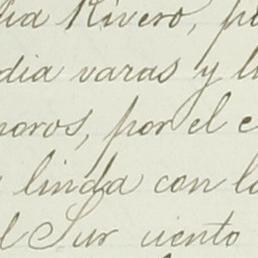 lia Rivero, p
dia varas y l
noros, por el c
linda con lo
l Sur ciento